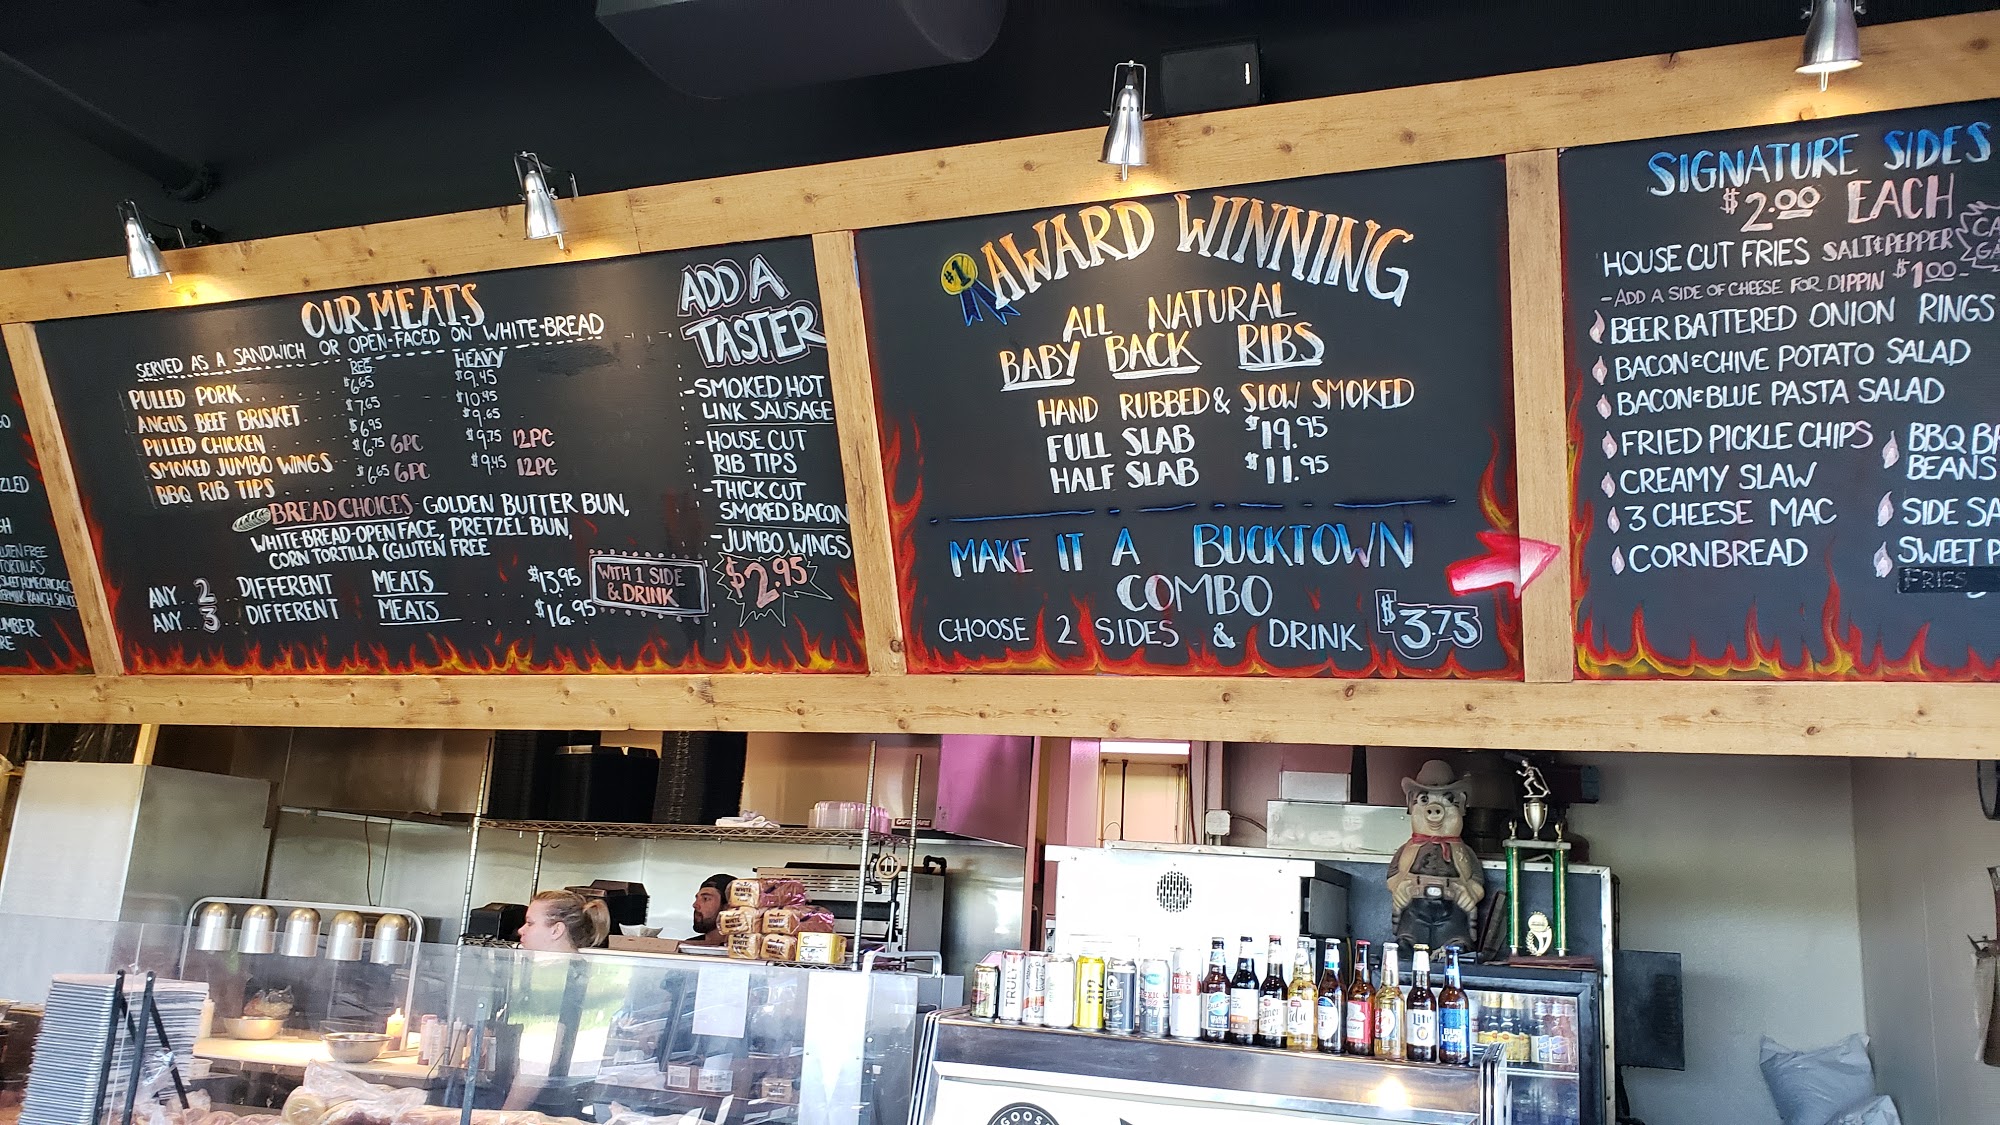 ZLED
GLUTEN FREE
TORTILLAS
SWEET HOME CHICAGO
RANCH SAUCE
OUR MEATS
SERVED AS A SANDWICH OR OPEN-FACED ON WHITE-BREAD
REG HEAVY
PULLED PORK $6.65 $9.45
ANGUS BEEF BRISKET $7.65 $10.95
PULLED CHICKEN $6.95 $9.65
SMOKED JUMBO WINGS $6.75 6PC $9.75 12PC
BBQ RIB TIPS $6.65 6PC $9.45 12PC
BREAD CHOICES - GOLDEN BUTTER BUN,
WHITE-BREAD-OPEN FACE, PRETZEL BUN,
CORN TORTILLA (GLUTEN FREE
ANY 2 DIFFERENT MEATS $13.95
ANY 3 DIFFERENT MEATS $16.95
WITH 1 SIDE
& DRINK
ADD A
TASTER
-SMOKED HOT
LINK SAUSAGE
-HOUSE CUT
RIB TIPS
-THICK CUT
SMOKED BACON
-JUMBO WINGS
$2.95
#1
AWARD WINNING
ALL NATURAL
BABY BACK RIBS
HAND RUBBED & SLOW SMOKED
FULL SLAB $19.95
HALF SLAB $11.95
MAKE IT A BUCKTOWN
COMBO
CHOOSE 2 SIDES & DRINK $3.75
SIGNATURE SIDES
$2.00 EACH
HOUSE CUT FRIES SALT & PEPPER
-ADD A SIDE OF CHEESE FOR DIPPIN $1.00-
BEER BATTERED ONION RINGS
BACON & CHIVE POTATO SALAD
BACON & BLUE PASTA SALAD
FRIED PICKLE CHIPS
CREAMY SLAW
3 CHEESE MAC
CORNBREAD
BBQ
BEANS
SIDE
SWEET
FRIES
WHITE
TRULY
312
Lite
BUD LIGHT
GOOSE